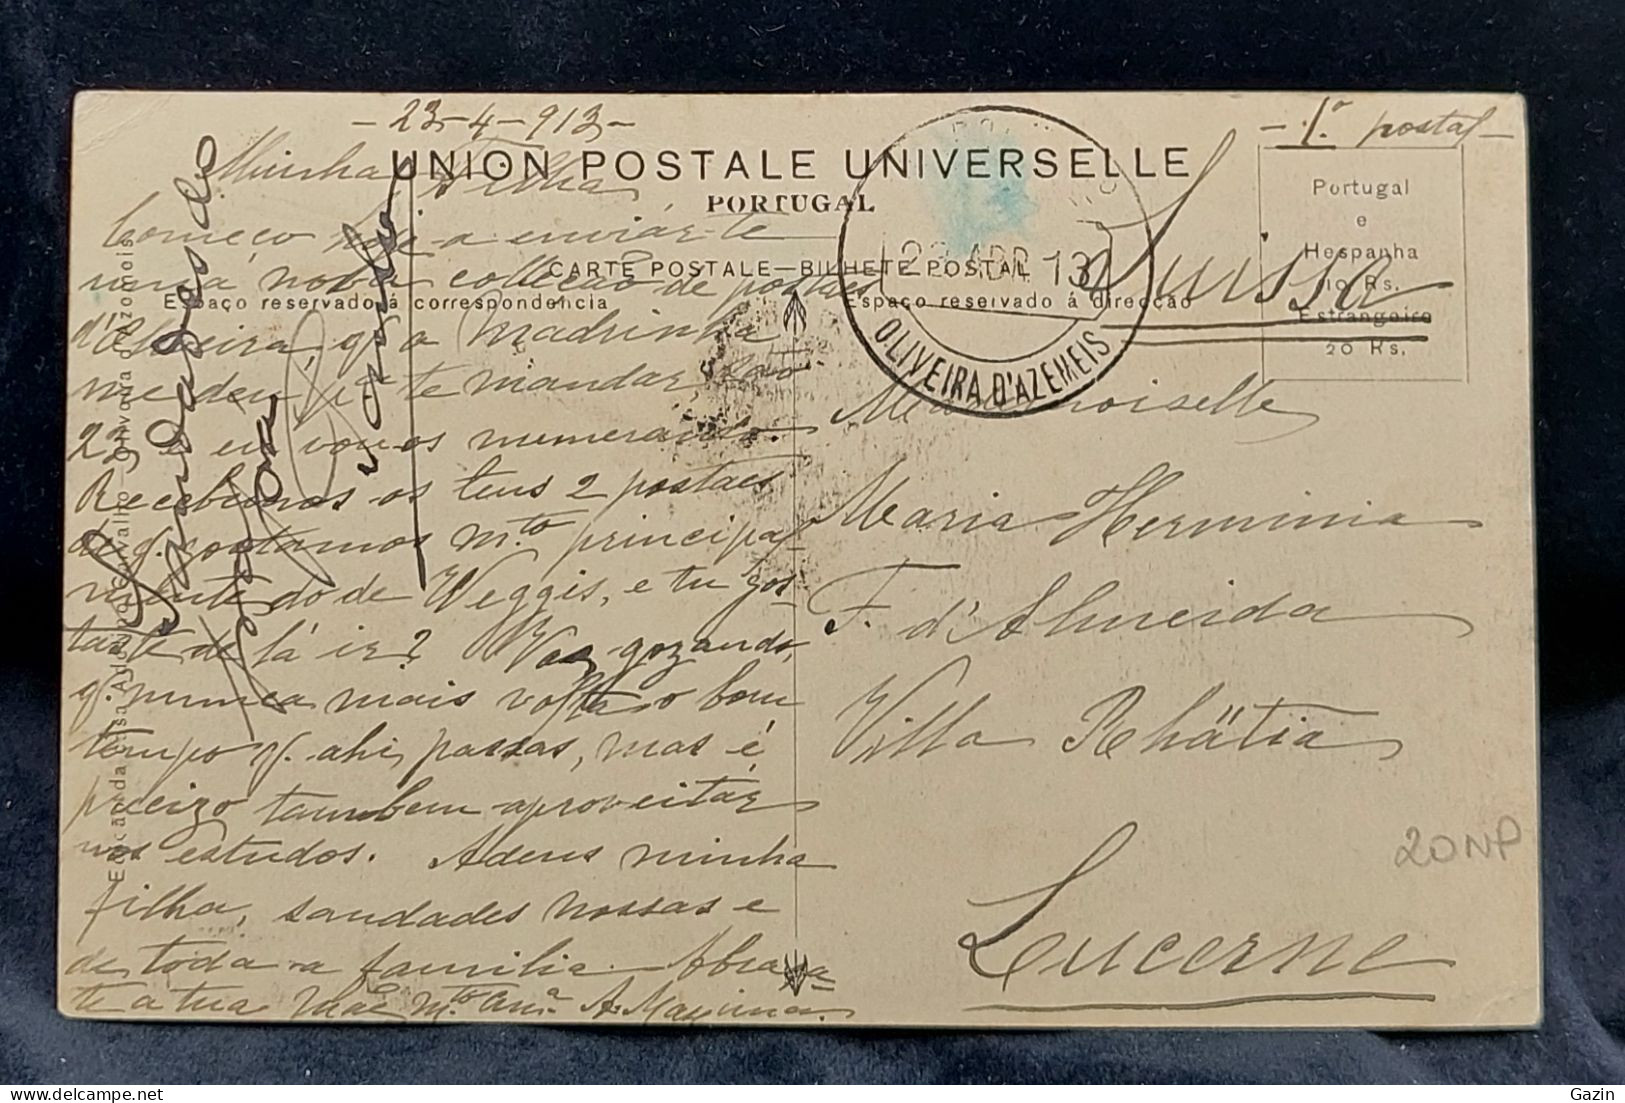 -23-4-913-
-1.º postal-
Minha Filha
UNION POSTALE UNIVERSELLE
PORTUGAL
Começo hoje a enviár-te
uma nova collecção de postaes
CARTE POSTALE—BILHETE POSTAL
Espaço reservado á correspondencia
Espaço reservado á direcção
d'Oliveira, q. a Madrinha
me deu p.ª te mandar, são
23, e eu vou-os numerando.
Recebemos os teus 2 postaes
de q. gostamos m.to principal
mente do de Weggis, e tu gos-
taste de lá ir? Vae gozando,
q. nunca mais volta o bom
tempo q. ahi passas, mas é
preizo tambem aproveitár
nos estudos. Adeus minha
filha, saudades nossas e
de toda a familia. Abraça-
te a tua Mãe m.to am.ª A. Maxima.
Saudades do
Edição da Casa Adolpho Carvalho—Oliveira d'Azemeis
23 ABR 13
OLIVEIRA D'AZEMEIS
Suissa
Portugal
e
Hespanha
10 Rs.
Estrangeiro
20 Rs.
Mademoiselle
Maria Herminia
F. d'Almeida
Villa Rhätia
Lucerne
20NP
Gazin